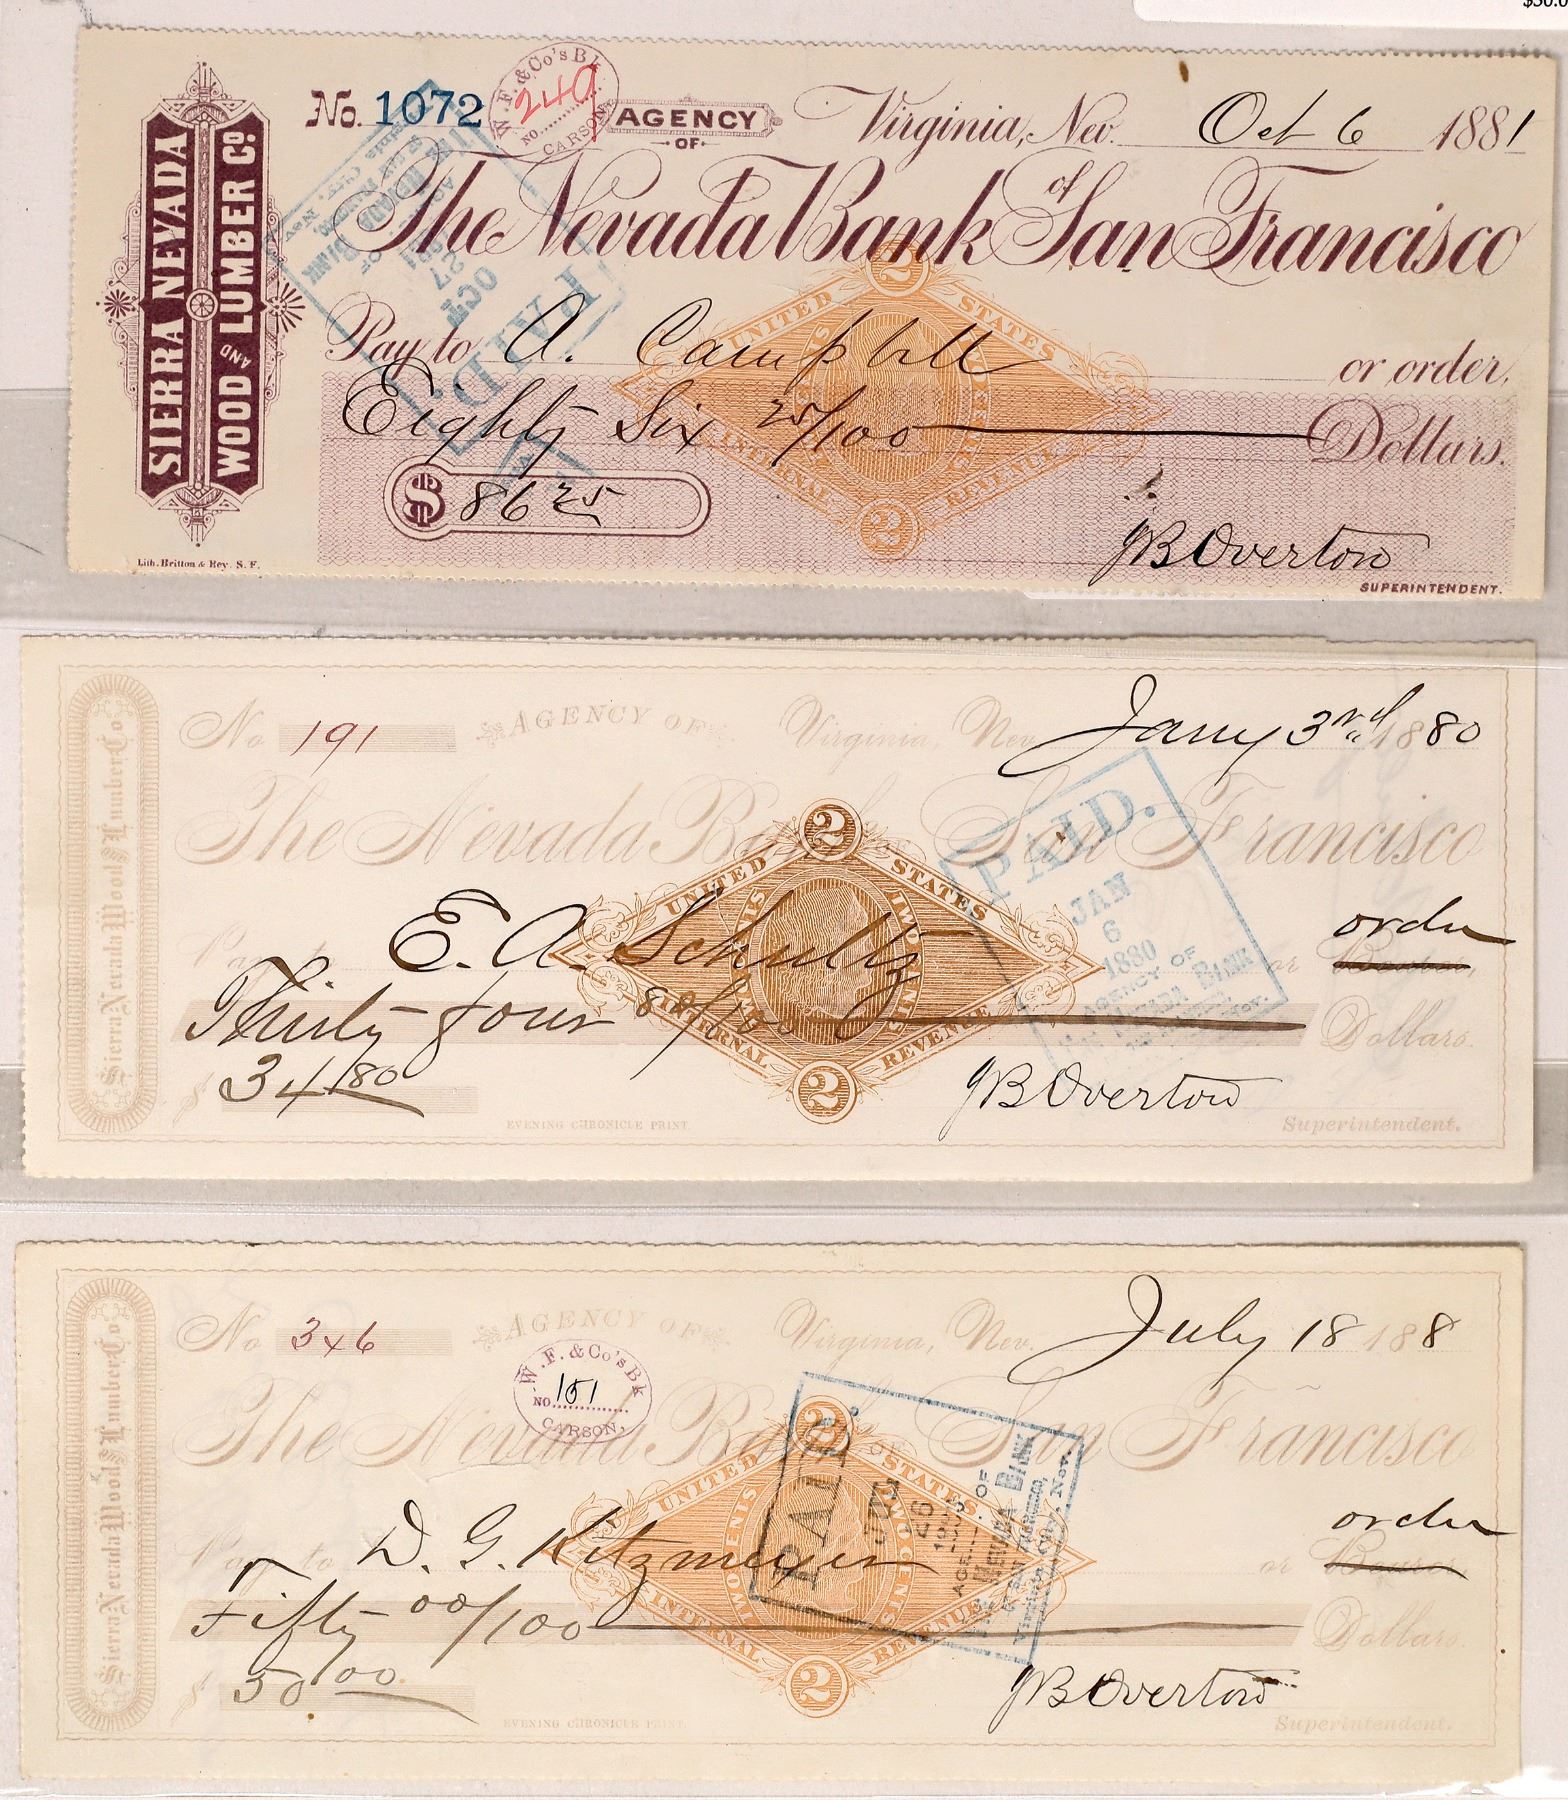 SIERRA NEVADA
WOOD AND LUMBER Co.
No. 1072
W. F. & Co's Bk
No. 240
CARSON.
AGENCY
OF
Virginia, Nev. Oct 6 1881
The Nevada Bank of San Francisco
PAID.
OCT
27
1881
Pay to A. Campbell or order,
Eighty Six 25/100 Dollars.
$ 86 25
UNITED STATES
INTERNAL REVENUE
2
2
JB Overton
SUPERINTENDENT.
Lith. Britton & Rey. S. F.
Sierra Nevada Wood & Lumber Co
No 191
AGENCY OF
Virginia, Nev. Jany 3rd 1880
The Nevada Bank San Francisco
PAID.
JAN
6
1880
AGENCY OF
NEVADA BANK
E. A. Schultz or Bearer, order
Thirty four 80/100 Dollars.
$ 34 80
UNITED STATES
TWO CENTS
INTERNAL REVENUE
2
2
JB Overton
EVENING CHRONICLE PRINT.
Superintendent.
Sierra Nevada Wood & Lumber Co
No 346
AGENCY OF
Virginia, Nev. July 18 188
W. F. & Co's Bk
NO. 151
CARSON,
The Nevada Bank OF San Francisco
PAID.
26
OF
NEVADA BANK
OF SAN FRANCISCO,
Virginia City, Nev.
Pay to D. G. Kitzmeyer or Bearer order
Fifty 00/100 Dollars.
$ 50 00
UNITED STATES
TWO CENTS
INTERNAL REVENUE
2
2
JB Overton
EVENING CHRONICLE PRINT.
Superintendent.